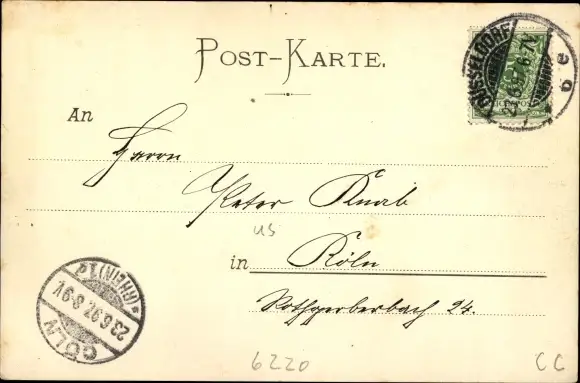 POST-KARTE.
DÜSSELDORF
6-7N
REICHSPOST
An
Herrn
Peter Knab
us
in Köln
Rothgerberbach 24.
CÖLN (RHEIN) 1
23.6.97. 8-9V
6220
CC